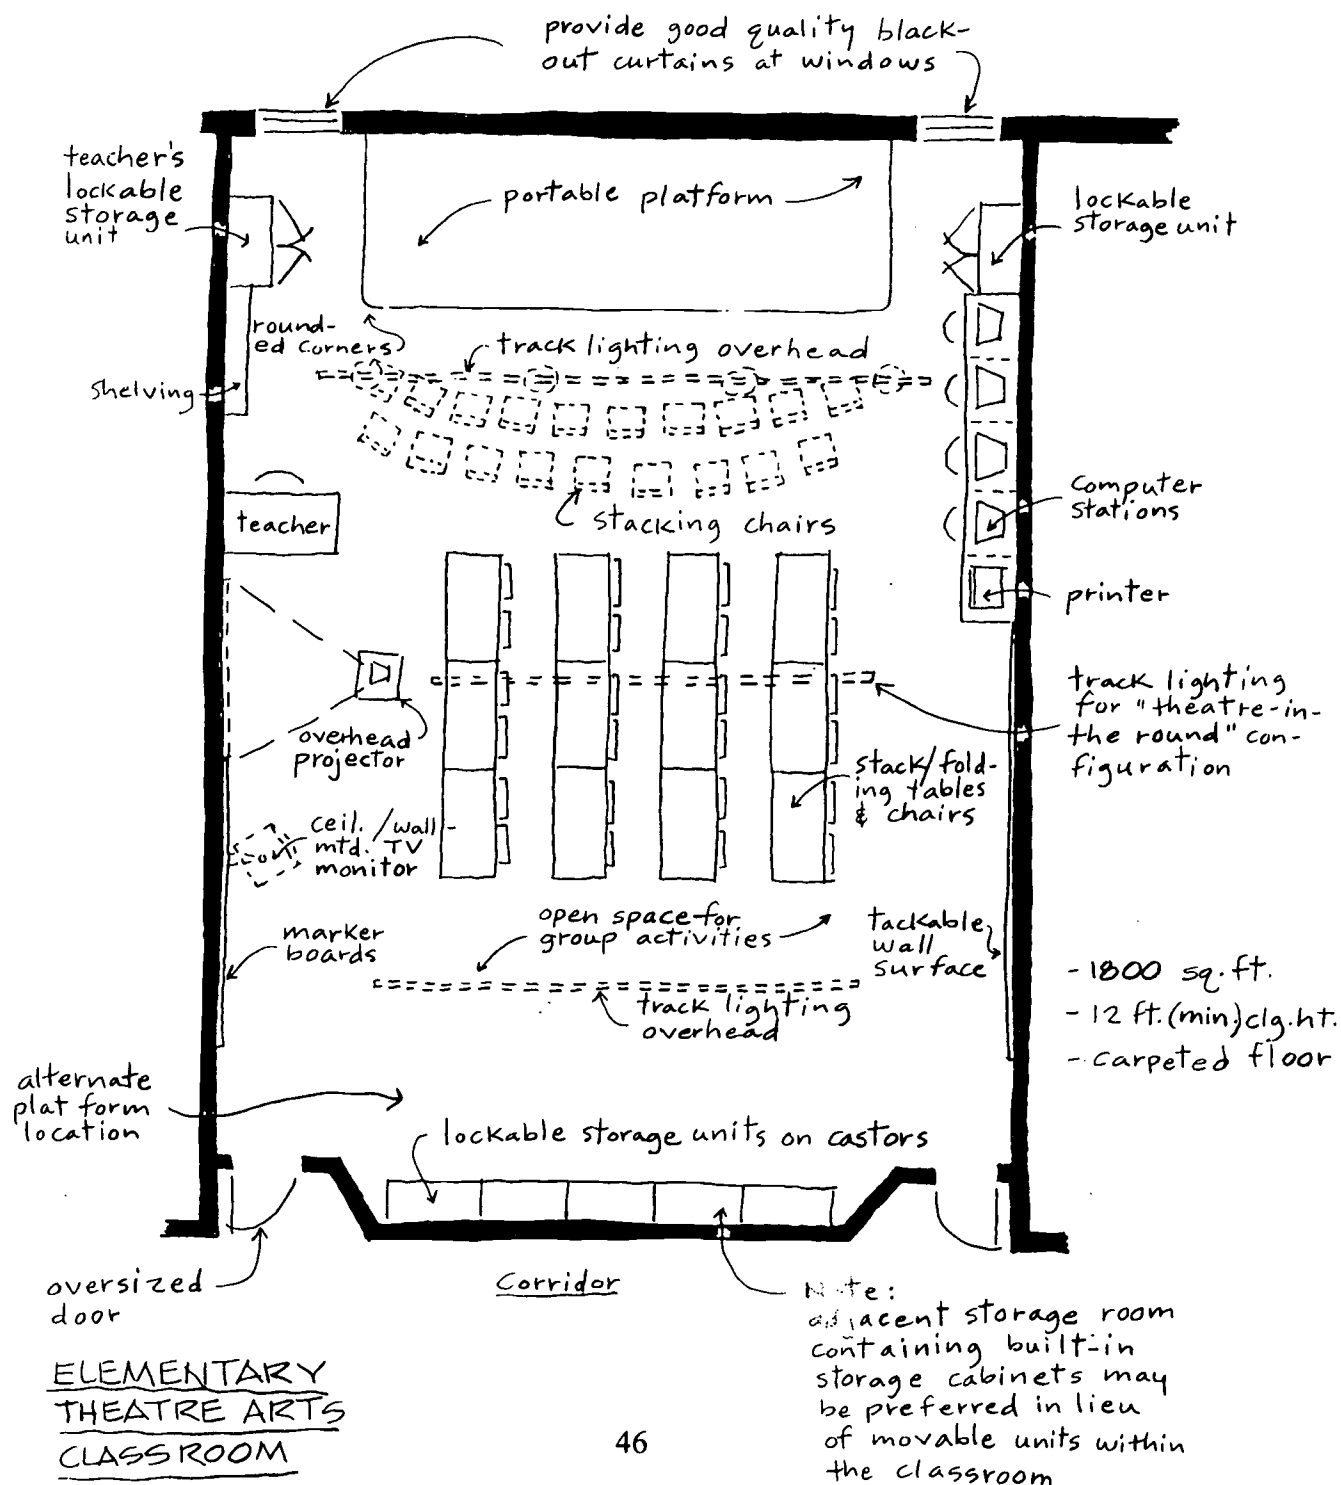 provide good quality black-
out curtains at windows
teacher's
lockable
storage
unit
portable platform
lockable
storage unit
round-
ed corners
track lighting overhead
shelving
stacking chairs
teacher
computer
stations
printer
overhead
projector
track lighting
for "theatre-in-
the round" con-
figuration
stack/fold-
ing tables
& chairs
ceil./wall-
mtd. TV
monitor
open space for
group activities
marker
boards
tackable
wall
surface
- 1800 sq. ft.
- 12 ft. (min.) clg. ht.
- carpeted floor
track lighting
overhead
alternate
platform
location
lockable storage units on castors
oversized
door
Corridor
Note:
adjacent storage room
containing built-in
storage cabinets may
be preferred in lieu
of movable units within
the classroom
ELEMENTARY
THEATRE ARTS
CLASSROOM
46